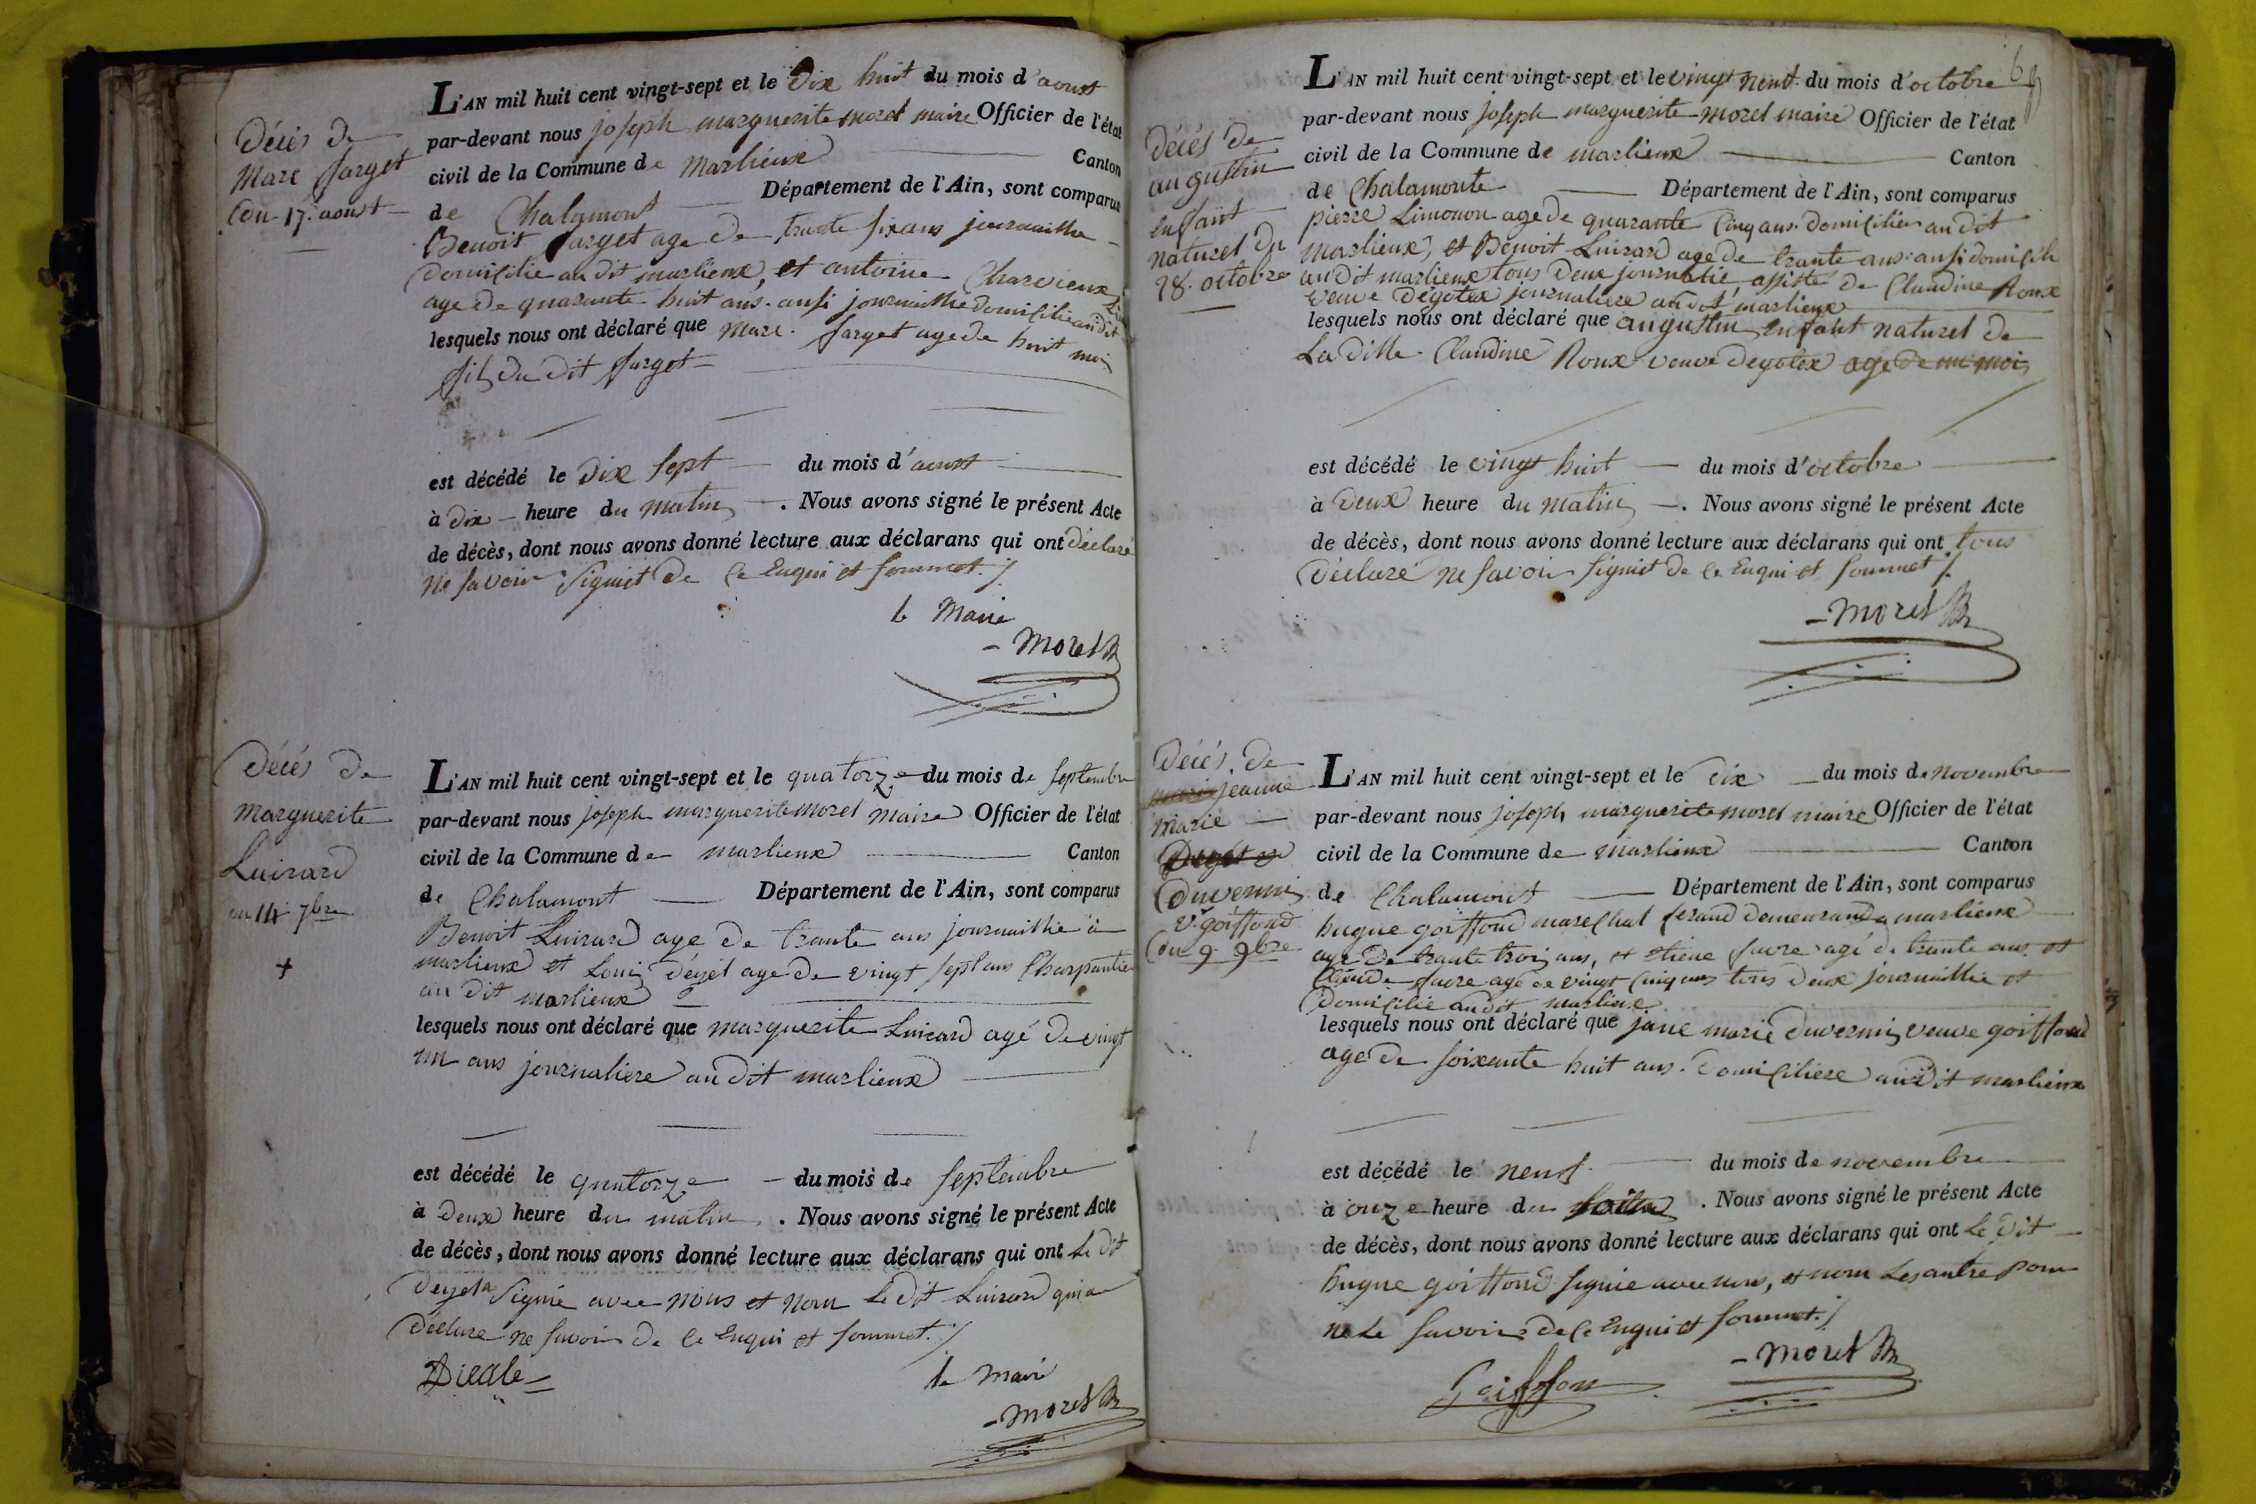 Décés de
Marc farget
du 17. aoust
L'AN mil huit cent vingt-sept et le Dix huit du mois d'aoust
par-devant nous joseph marguerite morel maire Officier de l'état
civil de la Commune de Marlieux Canton
de Chalamont Département de l'Ain, sont comparus
Benoit farget age de trante six ans journaillie
domicilie au dit marlieux, et antoine Charvieux
age de quarante huit ans. ausi journaillie domicilie au dit
lesquels nous ont déclaré que Marc. farget age de huit moi
fils du dit farget
est décédé le Dix sept du mois d'aoust
à dix heure du matin. Nous avons signé le présent Acte
de décès, dont nous avons donné lecture aux déclarans qui ont déclaré
ne savoir signiet de ce Enqui et sommet./
le Maire
Morel
Décés de
Marguerite
Luirard
au 14 7bre
+
L'AN mil huit cent vingt-sept et le quatorze du mois de septembre
par-devant nous joseph marguerite morel maire Officier de l'état
civil de la Commune de marlieux Canton
de Chalamont Département de l'Ain, sont comparus
Benoit Luirard age de trante ans journaillie à
marlieux et Louis Déyét age de vingt sept ans Charpantie
au dit marlieux
lesquels nous ont déclaré que marguerite Luirard agé de vingt
un ans journaliere au dit marlieux
est décédé le quatorze du mois de septembre
à Deux heure du matin. Nous avons signé le présent Acte
de décès, dont nous avons donné lecture aux déclarans qui ont le dit
Deyet a signie avec nous et nom le dit Luirard qui a
déclaré ne savoir de ce Enqui et sommet./
le Maire
Morel
6
Décés de
augustin
enfant
naturel du
28. octobre
L'AN mil huit cent vingt-sept et le vingt neuf du mois d'octobre
par-devant nous joseph marguerite morel maire Officier de l'état
civil de la Commune de marlieux Canton
de Chalamonte Département de l'Ain, sont comparus
pierre Limonon age de quarante cinq ans. domicilier au dit
marlieux, et Benoit Luirard age de trante ans ausi domicilie
au dit marlieux tous deux journalié, assisté de Claudine Roux
veuve Degotex journaliere au dit marlieux
lesquels nous ont déclaré que augustin enfant naturel de
La ditte Claudine Roux veuve Degotex age de un mois
est décédé le vingt huit du mois d'octobre
à Deux heure du matin. Nous avons signé le présent Acte
de décès, dont nous avons donné lecture aux déclarans qui ont tous
Déclaré ne savoir signiet de ce Enqui et sommet/.
Morel
Décés de
marie jeanne
marie
Duvernis
ve goiffond
du 9 9bre
L'AN mil huit cent vingt-sept et le dix du mois de novembre
par-devant nous joseph marguerite morel maire Officier de l'état
civil de la Commune de marlieux Canton
de Chalamont Département de l'Ain, sont comparus
hugue goiffond marechal ferand demeurand a marlieux
age de trante trois ans, et etiene favre agé de trante ans et
Claude favre agé de vingt cinq ans tous deux journaillie et
domicilié au dit marlieux
lesquels nous ont déclaré que jane marie duvernis veuve goiffond
age de soixante huit ans. domiciliere au dit marlieux
est décédé le neuf du mois de novembre
à onze heure du. Nous avons signé le présent Acte
de décès, dont nous avons donné lecture aux déclarans qui ont le dit
hugue goiffond signie avec nous, et nom les autre pour
ne le savoir de ce Enqui et sommet./
Goiffon
Morel